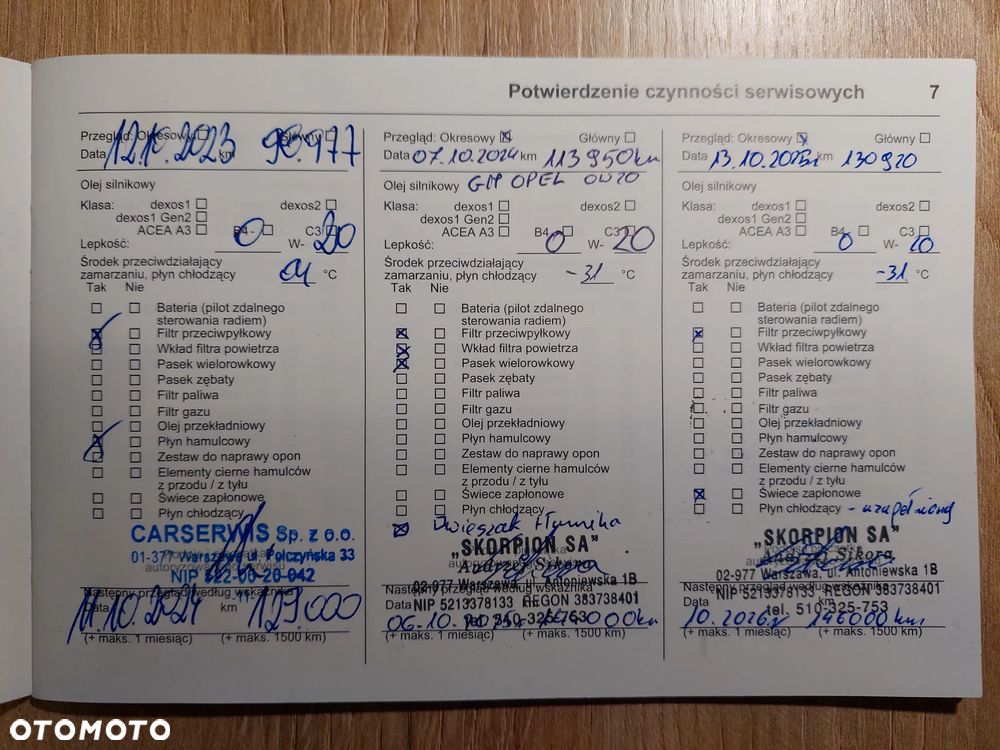 Potwierdzenie czynności serwisowych 7
Przegląd: Okresowy Główny
Data 12.10.2023 km 90.977
Olej silnikowy
Klasa: dexos1 dexos2
dexos1 Gen2
ACEA A3 B4 C3
Lepkość: 0 W- 20
Środek przeciwdziałający
zamarzaniu, płyn chłodzący °C
Tak Nie
Bateria (pilot zdalnego
sterowania radiem)
Filtr przeciwpyłkowy
Wkład filtra powietrza
Pasek wielorowkowy
Pasek zębaty
Filtr paliwa
Filtr gazu
Olej przekładniowy
Płyn hamulcowy
Zestaw do naprawy opon
Elementy cierne hamulców
z przodu / z tyłu
Świece zapłonowe
Płyn chłodzący
CARSERWIS Sp. z o.o.
01-377 Warszawa ul. Połczyńska 33
NIP 522-00-20-042
Następny przegląd według wskaźnika
Data 11.10.2024 km 129.000
(+ maks. 1 miesiąc) (+ maks. 1500 km)
Przegląd: Okresowy Główny
Data 07.10.2024 km 113950km
Olej silnikowy GM OPEL 0W20
Klasa: dexos1 dexos2
dexos1 Gen2
ACEA A3 B4 C3
Lepkość: 0 W- 20
Środek przeciwdziałający
zamarzaniu, płyn chłodzący -31 °C
Tak Nie
Bateria (pilot zdalnego
sterowania radiem)
Filtr przeciwpyłkowy
Wkład filtra powietrza
Pasek wielorowkowy
Pasek zębaty
Filtr paliwa
Filtr gazu
Olej przekładniowy
Płyn hamulcowy
Zestaw do naprawy opon
Elementy cierne hamulców
z przodu / z tyłu
Świece zapłonowe
Płyn chłodzący
„SKORPION SA"
Andrzej Sikora
02-977 Warszawa, ul. Antoniewska 1B
Następny przegląd według wskaźnika
NIP 5213378133 REGON 383738401
Data km
tel. 510-325-753
(+ maks. 1 miesiąc) (+ maks. 1500 km)
Przegląd: Okresowy Główny
Data 13.10.2025 km 130920
Olej silnikowy
Klasa: dexos1 dexos2
dexos1 Gen2
ACEA A3 B4 C3
Lepkość: 0 W- 20
Środek przeciwdziałający
zamarzaniu, płyn chłodzący -31 °C
Tak Nie
Bateria (pilot zdalnego
sterowania radiem)
Filtr przeciwpyłkowy
Wkład filtra powietrza
Pasek wielorowkowy
Pasek zębaty
Filtr paliwa
Filtr gazu
Olej przekładniowy
Płyn hamulcowy
Zestaw do naprawy opon
Elementy cierne hamulców
z przodu / z tyłu
Świece zapłonowe
Płyn chłodzący - uzupełniony
„SKORPION SA"
Andrzej Sikora
02-977 Warszawa, ul. Antoniewska 1B
Następny przegląd według wskaźnika
NIP 5213378133 REGON 383738401
Data
tel. 510-325-753
10.2026r 146000 km
(+ maks. 1 miesiąc) (+ maks. 1500 km)
OTOMOTO